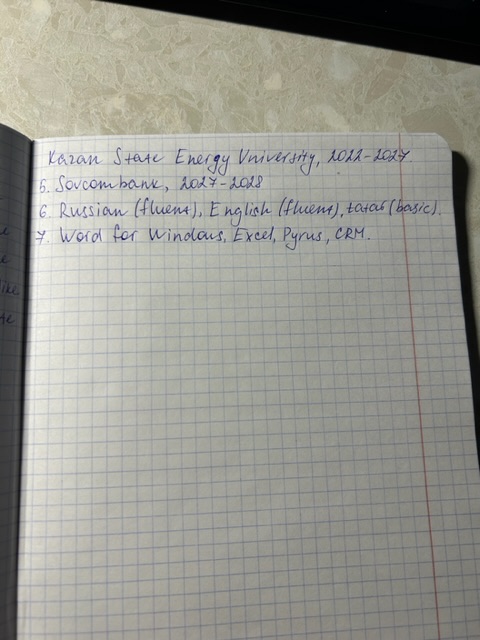 Kazan State Energy University, 2022-2027.
5. Sovcombank, 2027-2028
6. Russian (fluent), English (fluent), tatar (basic).
7. Word for Windows, Excel, Pyrus, CRM.